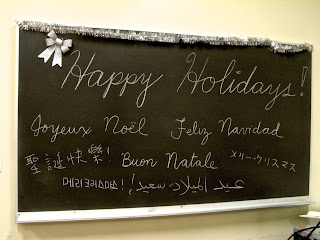 Happy Holidays!
Joyeux Noël Feliz Navidad
聖誕快樂! Buon Natale メリークリスマス
메리크리스마스! عيد الميلاد سعيد!